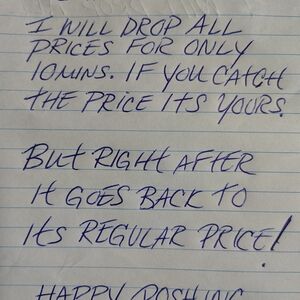 I WILL DROP ALL
PRICES FOR ONLY
10MINS. IF YOU CATCH
THE PRICE ITS YOURS.
BUT RIGHT AFTER
IT GOES BACK TO
ITS REGULAR PRICE!
HAPPY POSHING